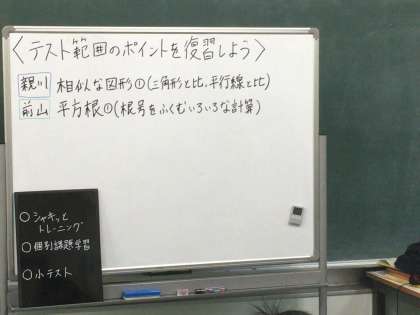 〈テスト範囲のポイントを復習しよう〉
親川 相似な図形①(三角形と比,平行線と比)
前山 平方根①(根号をふくむいろいろな計算)
○シャキッと
トレーニング
○個別課題学習
○小テスト